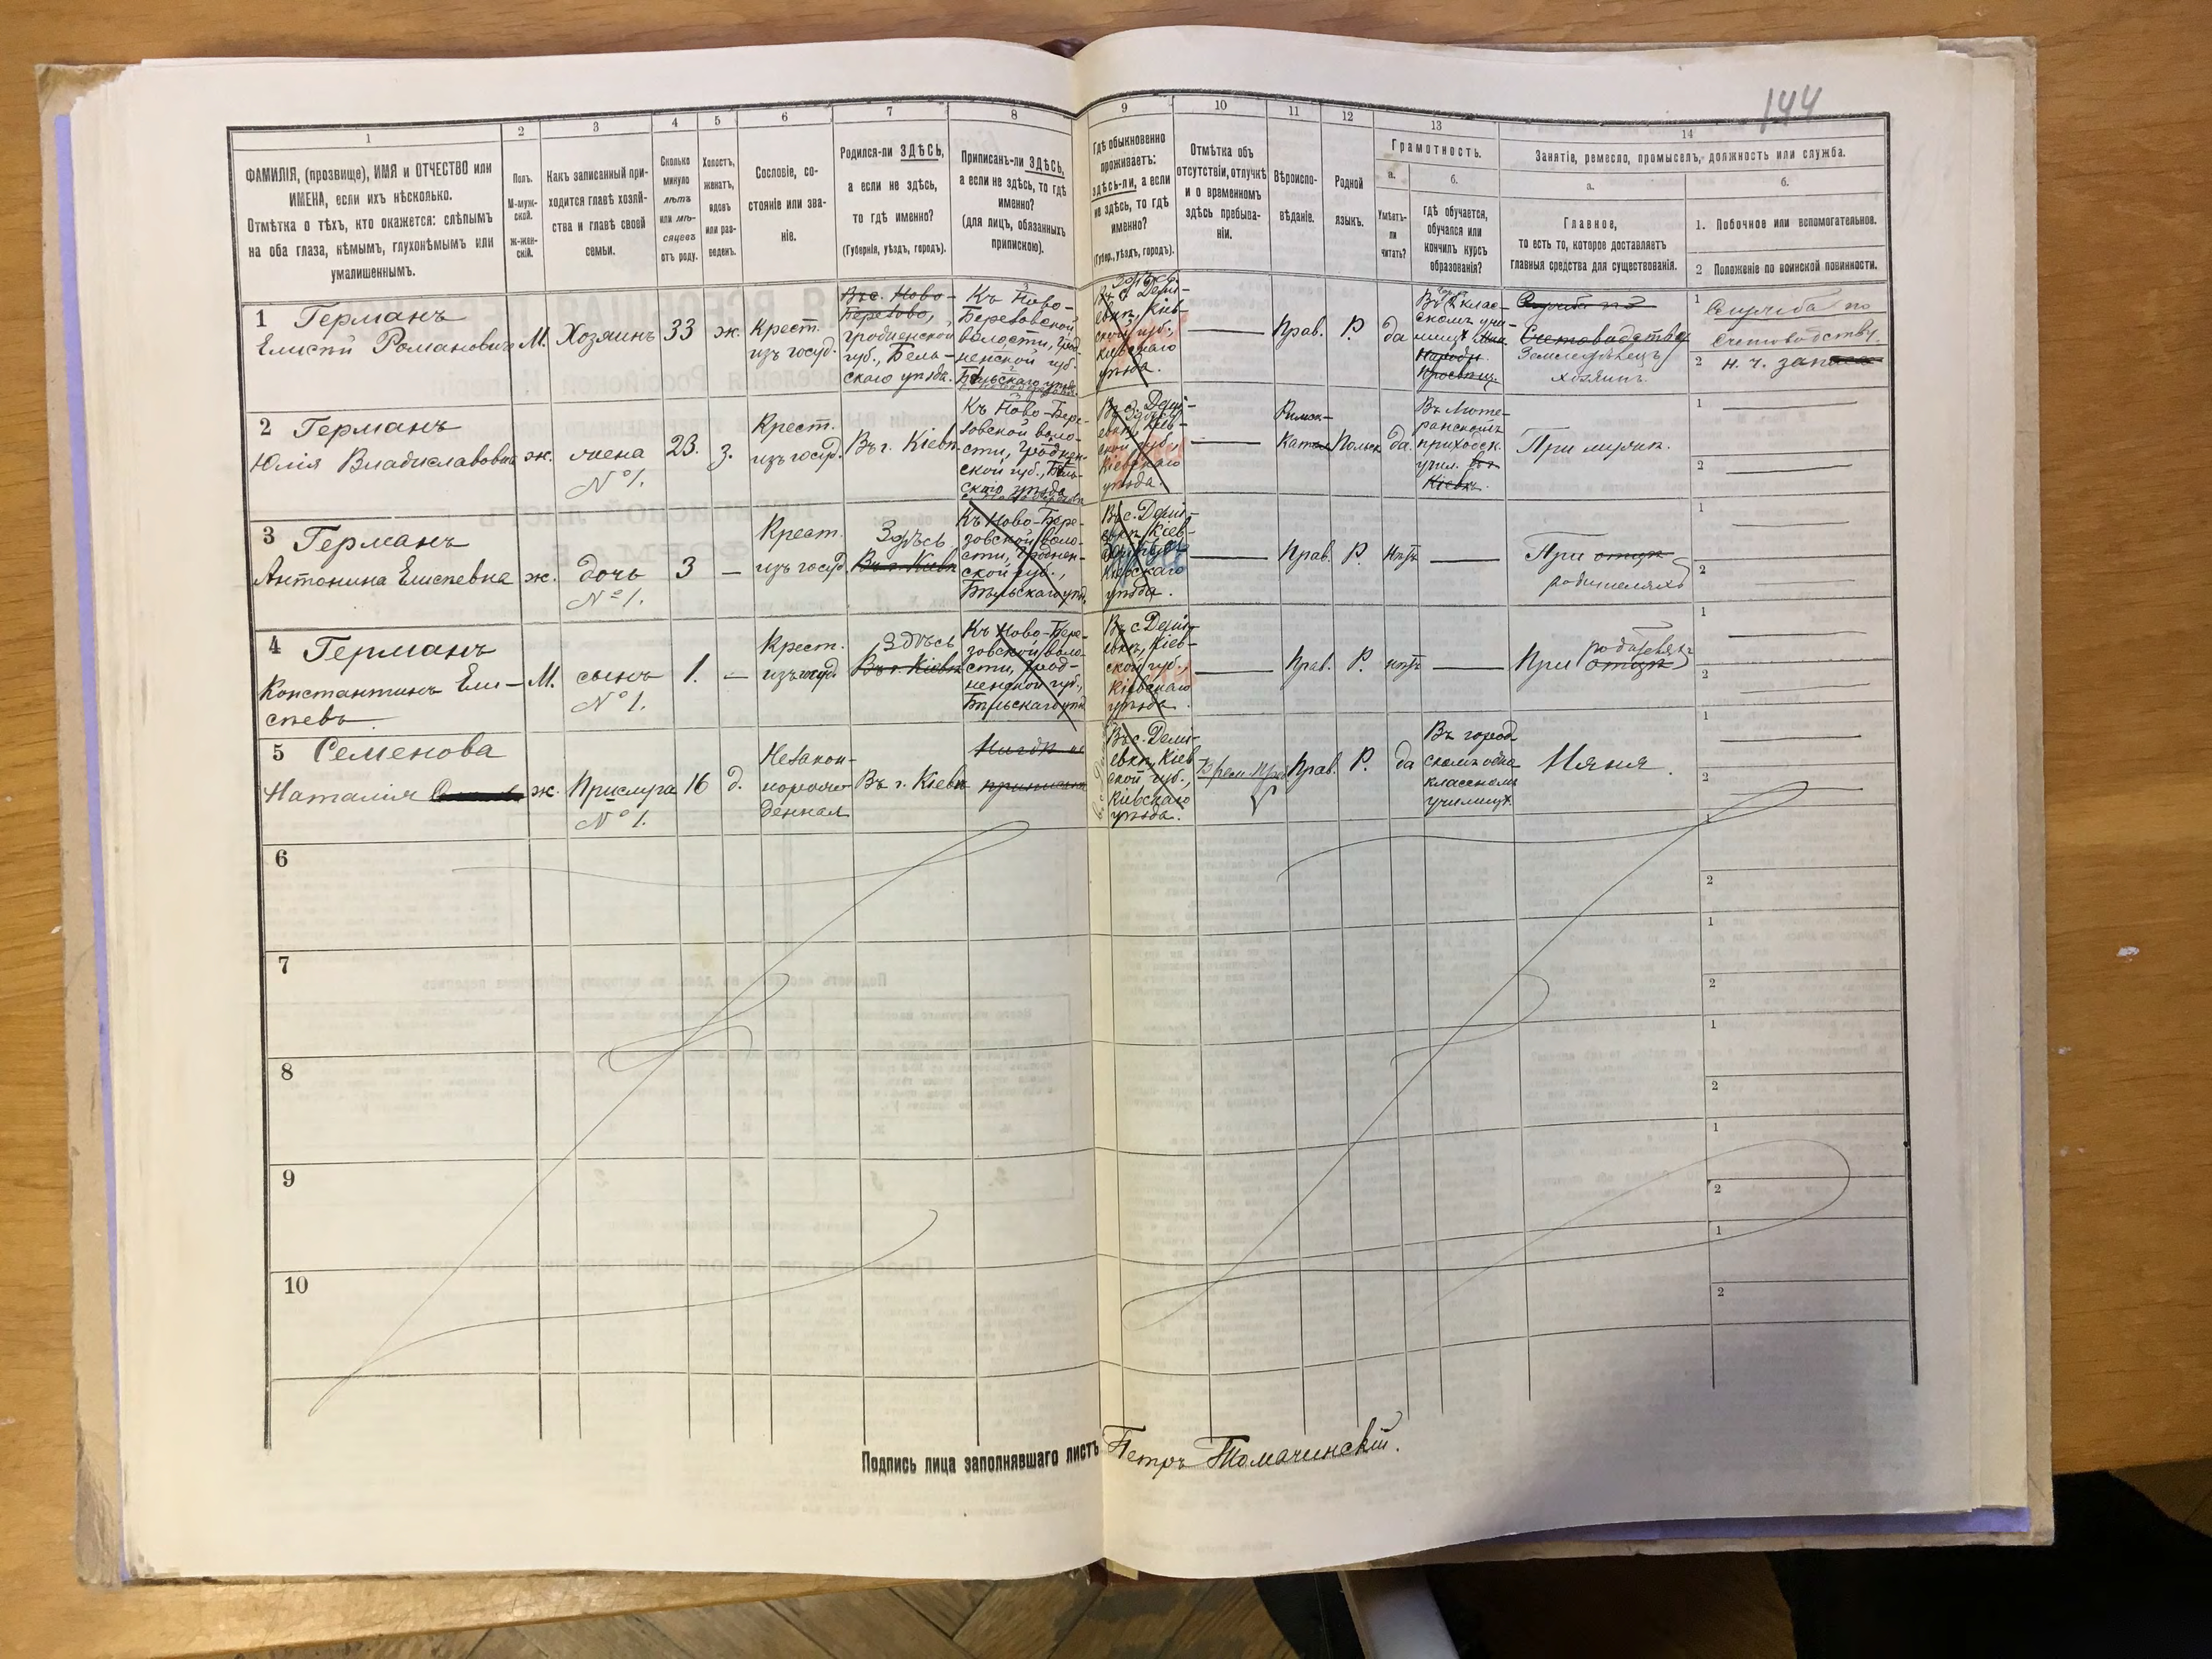 144
1
2
3
4
5
6
7
8
9
10
11
12
13
14
ФАМИЛІЯ, (прозвище), ИМЯ и ОТЧЕСТВО или
ИМЕНА, если ихъ нѣсколько.
Отмѣтка о тѣхъ, кто окажется: слѣпымъ
на оба глаза, нѣмымъ, глухонѣмымъ или
умалишеннымъ.
Полъ.
М-муж-
ской.
Ж-жен-
скій.
Какъ записанный при-
ходится главѣ хозяй-
ства и главѣ своей
семьи.
Сколько
минуло
лѣтъ
или мѣ-
сяцевъ
отъ роду.
Холостъ,
женатъ,
вдовъ
или раз-
веденъ.
Сословіе, со-
стояніе или зва-
ніе.
Родился-ли ЗДѢСЬ,
а если не здѣсь,
то гдѣ именно?
(Губернія, уѣздъ, городъ).
Приписанъ-ли ЗДѢСЬ,
а если не здѣсь, то гдѣ
именно?
(для лицъ, обязанныхъ
припискою).
Гдѣ обыкновенно
проживаетъ:
здѣсь-ли, а если
не здѣсь, то гдѣ
именно?
(Губер., уѣздъ, городъ).
Отмѣтка объ
отсутствіи, отлучкѣ
и о временномъ
здѣсь пребыва-
ніи.
Вѣроиспо-
вѣданіе.
Родной
языкъ.
Грамотность.
а.
Умѣетъ-
ли
читать?
б.
Гдѣ обучается,
обучался или
кончилъ курсъ
образованія?
Занятіе, ремесло, промыселъ, должность или служба.
а.
Главное,
то есть то, которое доставляетъ
главныя средства для существованія.
б.
1. Побочное или вспомогательное.
2 Положеніе по воинской повинности.
1 Германъ
Елисѣй Романовичъ
М.
Хозяинъ
33
ж.
Крест.
изъ госуд.
Въ с. Ново-
Березово,
Гродненской
губ., Бѣль-
скаго уѣзда.
Къ Ново-
Березовской
волости, Грод-
ненской губ.
Бѣльскаго уѣзда
Здѣсь
Въ с. Деми-
евкѣ, Кіев-
ской губ.,
Кіевскаго
уѣзда.
Прав.
Р.
да
Въ 2 клас-
скомъ учи-
лищѣ
Народн.
Просвѣщ.
Служба по
Счетоводству
Землевѣдецъ
хозяинъ.
1
Служба по
счетоводству.
2
н. ч. запаса
2 Германъ
Юлія Владиславовна
ж.
жена
№ 1.
23.
з.
Крест.
изъ госуд.
Въ г. Кіевѣ
Къ Ново-Бере-
зовской воло-
сти, Гроднен-
ской губ., Бѣль-
скаго уѣзда
Въ с. Деми-
евкѣ, Кіев-
ской губ.,
Кіевскаго
уѣзда.
Римск-
Катол
Польск
да.
Въ Люте-
ранскомъ
приходск.
учил. въ
Кіевѣ.
При мужѣ.
1
2
3 Германъ
Антонина Елисѣевна
ж.
дочь
№ 1.
3
Крест.
изъ госуд.
Здѣсь
Въ г. Кіевѣ
Къ Ново-Бере-
зовской воло-
сти, Гроднен-
ской губ.,
Бѣльскаго уѣзд.
Въ с. Деми-
евкѣ, Кіев-
ской губ.
Кіевскаго
уѣзда.
Прав.
Р.
нѣтъ
При отцѣ
родителяхъ
1
2
4 Германъ
Константинъ Ели-
сѣевъ
М.
сынъ
№ 1.
1.
Крест.
изъ госуд.
Здѣсь
Въ г. Кіевѣ
Къ Ново-Бере-
зовской воло-
сти, Грод-
ненской губ.,
Бѣльскаго уѣзд.
Въ с. Деми-
евкѣ, Кіев-
ской губ.,
Кіевскаго
уѣзда.
Прав.
Р.
нѣтъ
родителяхъ
При отцѣ
1
2
5 Семенова
Наталія
ж.
Прислуга
№ 1.
16
д.
Незакон-
норож-
денная
Въ г. Кіевѣ
Нигдѣ не
приписана
Въ с. Деми-
евкѣ, Кіев
ской губ.,
Кіевскаго
уѣзда.
Прав.
Р.
да
Въ город
скомъ одно
классномъ
училищѣ.
Няня.
1
2
6
1
2
7
1
2
8
1
2
9
1
2
10
1
2
Подпись лица заполнявшаго листъ Петръ Томачинскій.